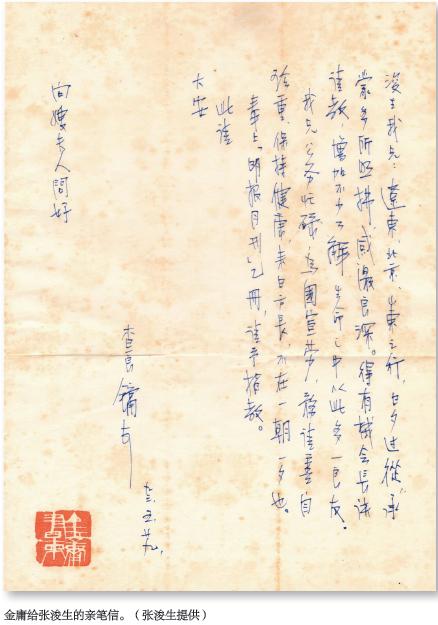 浚生我兄：遼東、北京、山東之行，日夕过從，承
蒙多所照拂，感激良深。得有機会長谈
請教，增加不少了解，生命之中从此多一良友。
我兄公务忙碌，為國宣劳，務請善自
珍重，保持健康，来日方長，不在一朝一夕也。
奉上「明报月刊」乙冊，請予指教。
此請
大安
向嫂夫人問好
查良鏞
金庸
金庸给张浚生的亲笔信。（张浚生提供）